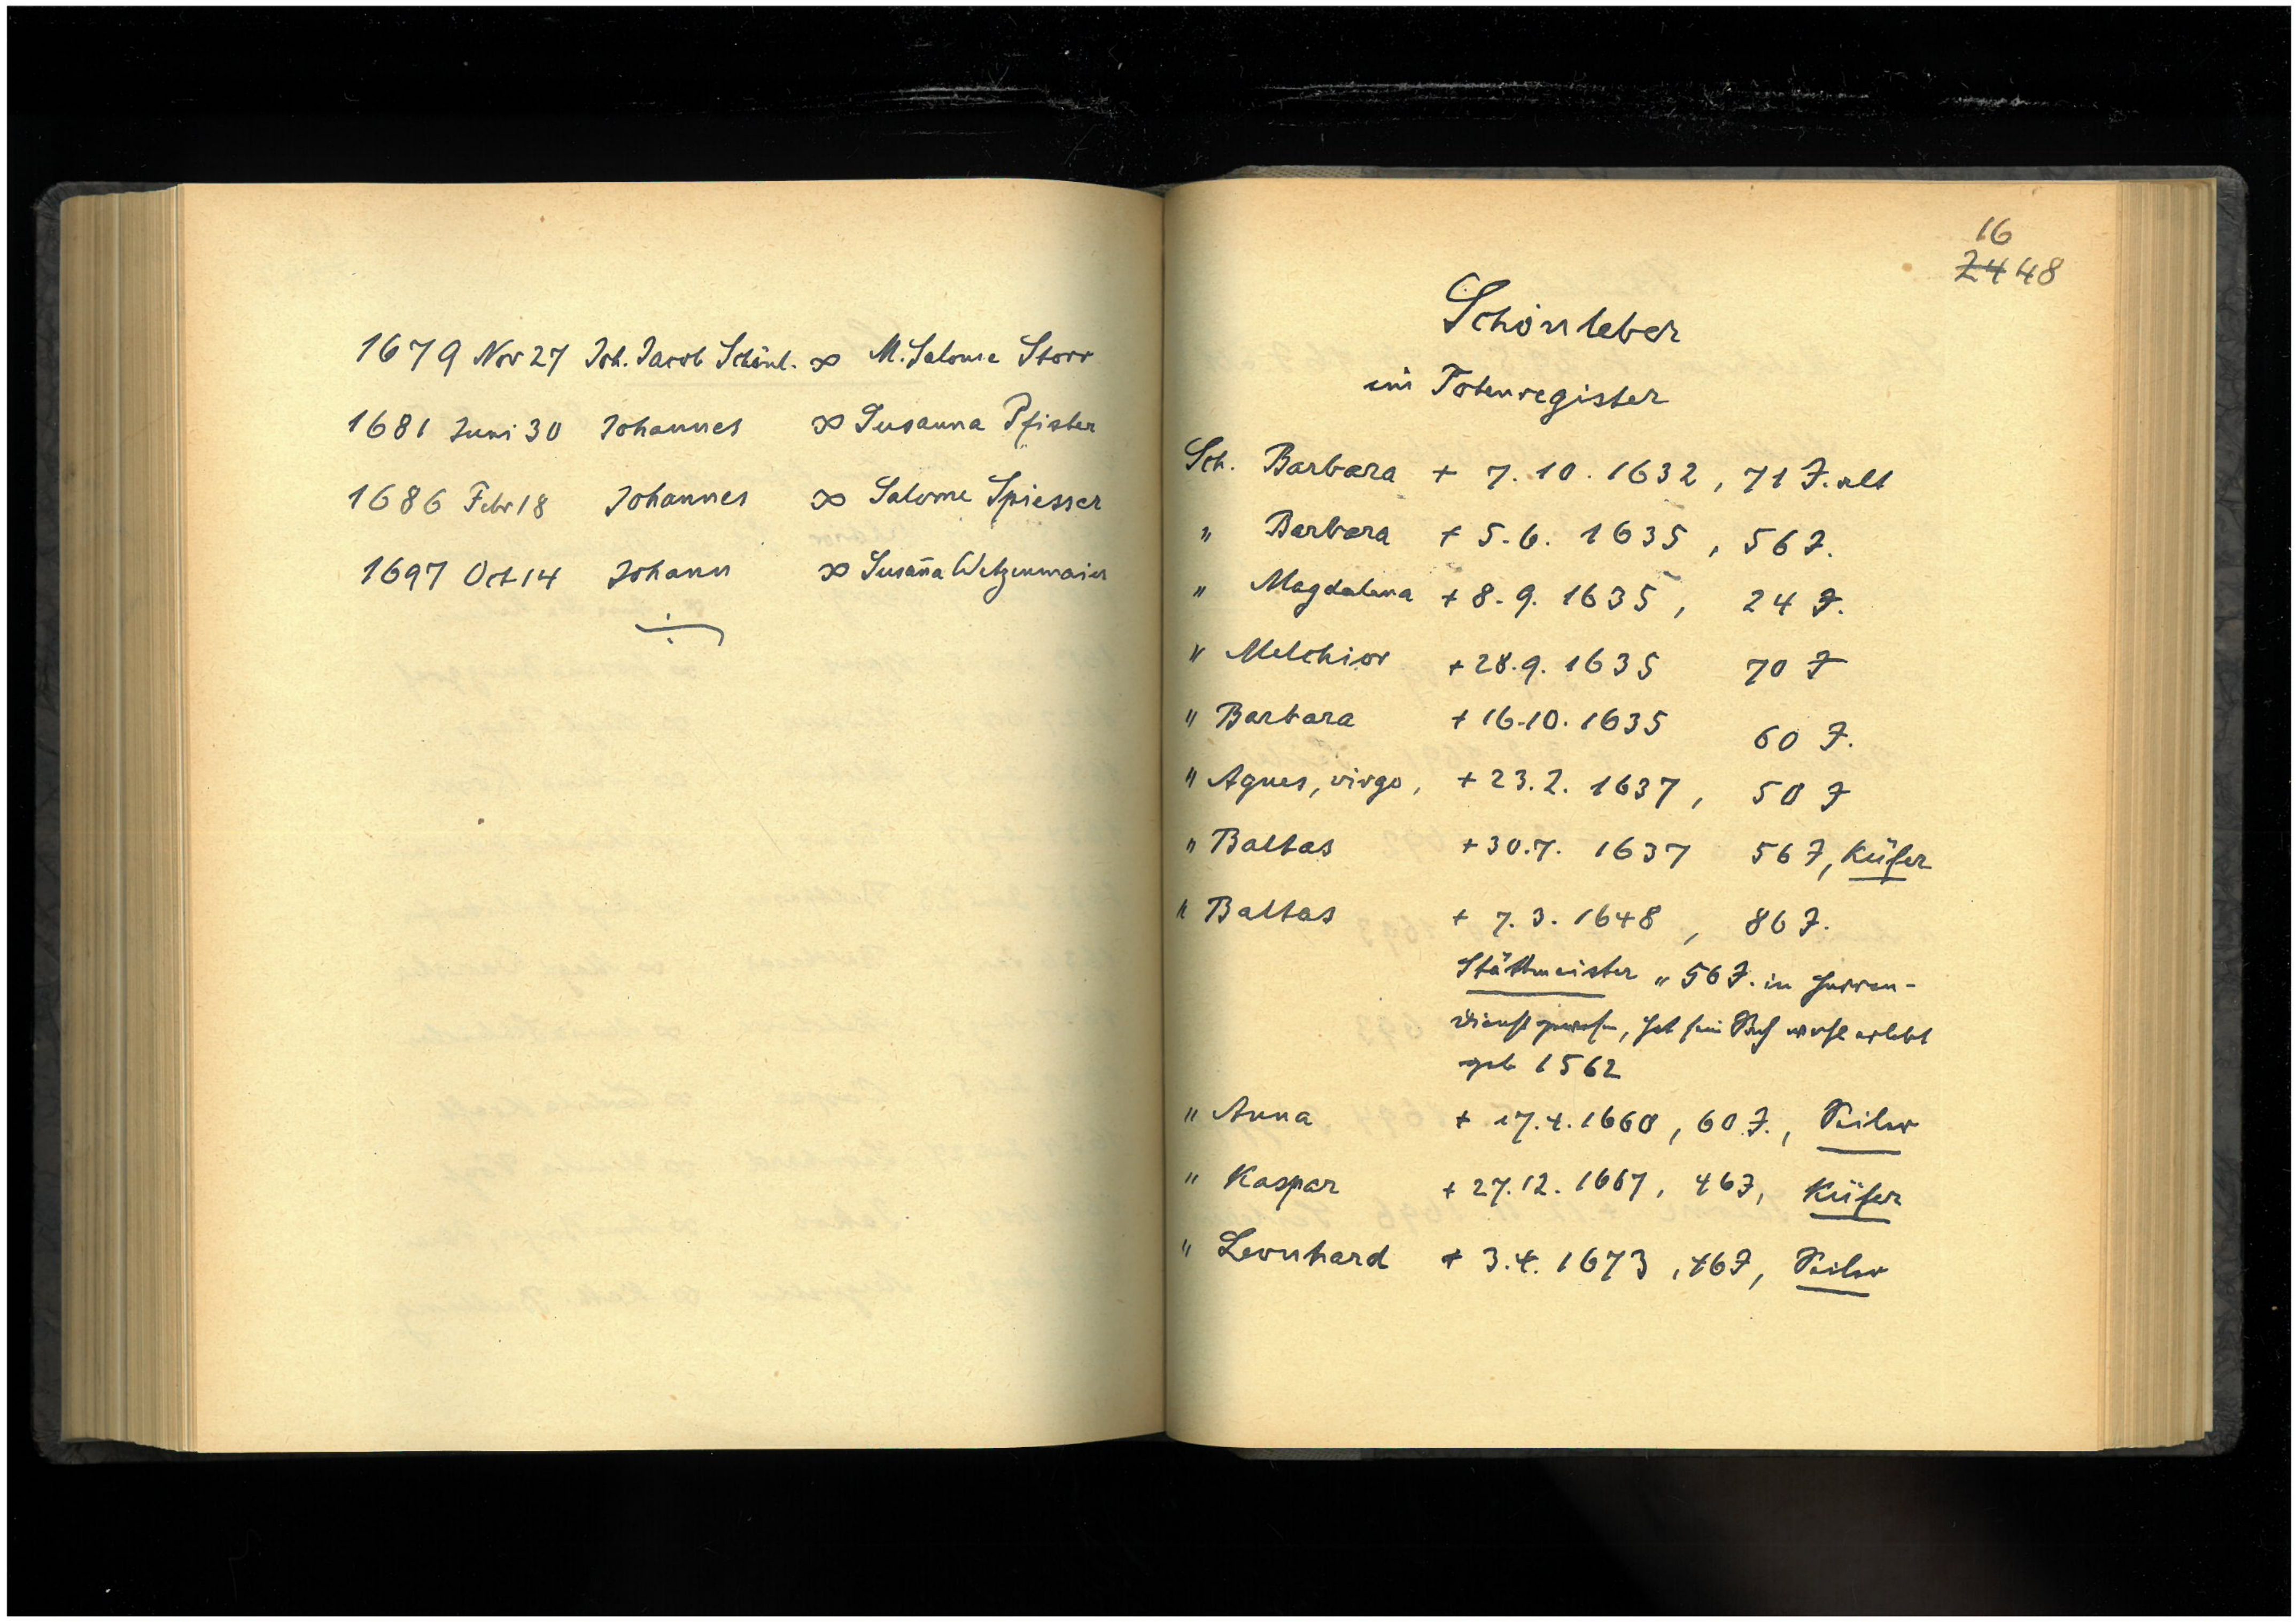 1679 Nov 27 Joh. Jacob Schönl. ∞ M. Salome Storr
1681 Juni 30 Johannes ∞ Susanna Pfister
1686 Febr 18 Johannes ∞ Salome Spiesser
1697 Oct 14 Johann ∞ Susan̄a Wetzenmaier
16
24 48
Schönleber
im Totenregister
Sch. Barbara + 7. 10. 1632, 71 J. alt
" Barbara + 5. 6. 1635, 56 J.
" Magdalena + 8. 9. 1635, 24 J.
" Melchior + 28. 9. 1635 70 J
" Barbara + 16. 10. 1635 60 J.
" Agnes, virgo, + 23. 2. 1637, 50 J
" Baltas + 30. 7. 1637 56 J, Küfer
" Baltas + 7. 3. 1648, 86 J.
Stättmeister „56 J. in Herren-
dienst gewesen, hat sein wohl erlebt
geb 1562
" Anna + 17. 4. 1660, 60 J., Seiler
" Kaspar + 27. 12. 1667, 46 J, Küfer
" Leonhard + 3. 4. 1673, 46 J, Seiler